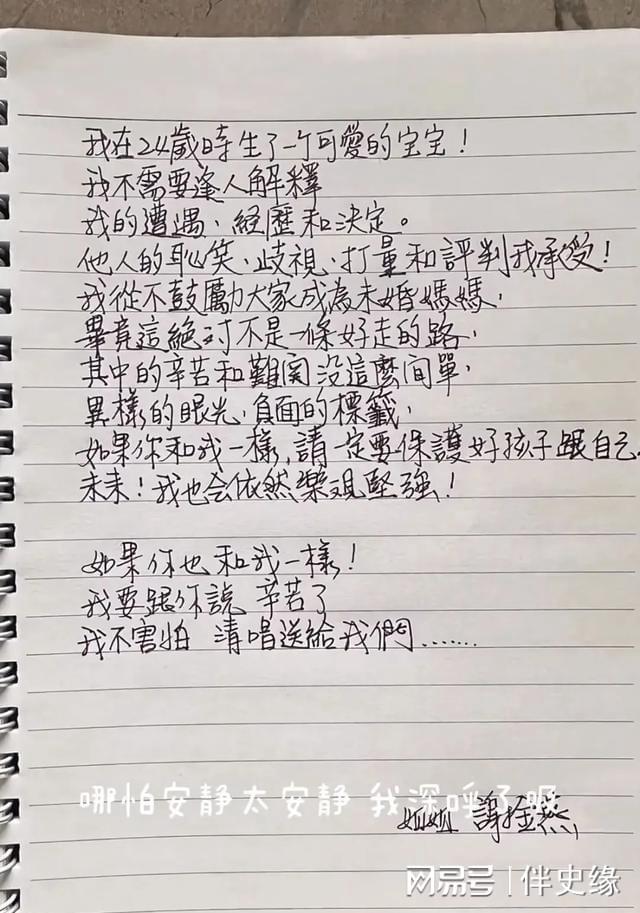 我在24歲時生了一个可愛的宝宝！
我不需要逢人解釋
我的遭遇、經歷和決定。
他人的恥笑、歧視、打量和評判我承受！
我從不鼓勵大家成為未婚媽媽，
畢竟這絕对不是一條好走的路，
其中的辛苦和難関没這麼间單，
異樣的眼光，負面的標籤，
如果你和我一樣，請一定要保護好孩子跟自己。
未來！我也会依然樂观堅強！
如果你也和我一樣！
我要跟你說 辛苦了
我不害怕 清唱送給我們.......
哪怕安静太安静 我深呼了吸
妞妞 謝
网易号 | 伴史缘